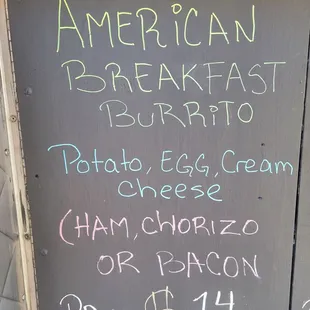 AMERiCAN
BREAKFAST
BURRiTO
Potato, EGG, Cream
cheese
(HAM, CHORIZO
OR BACON
$ 14